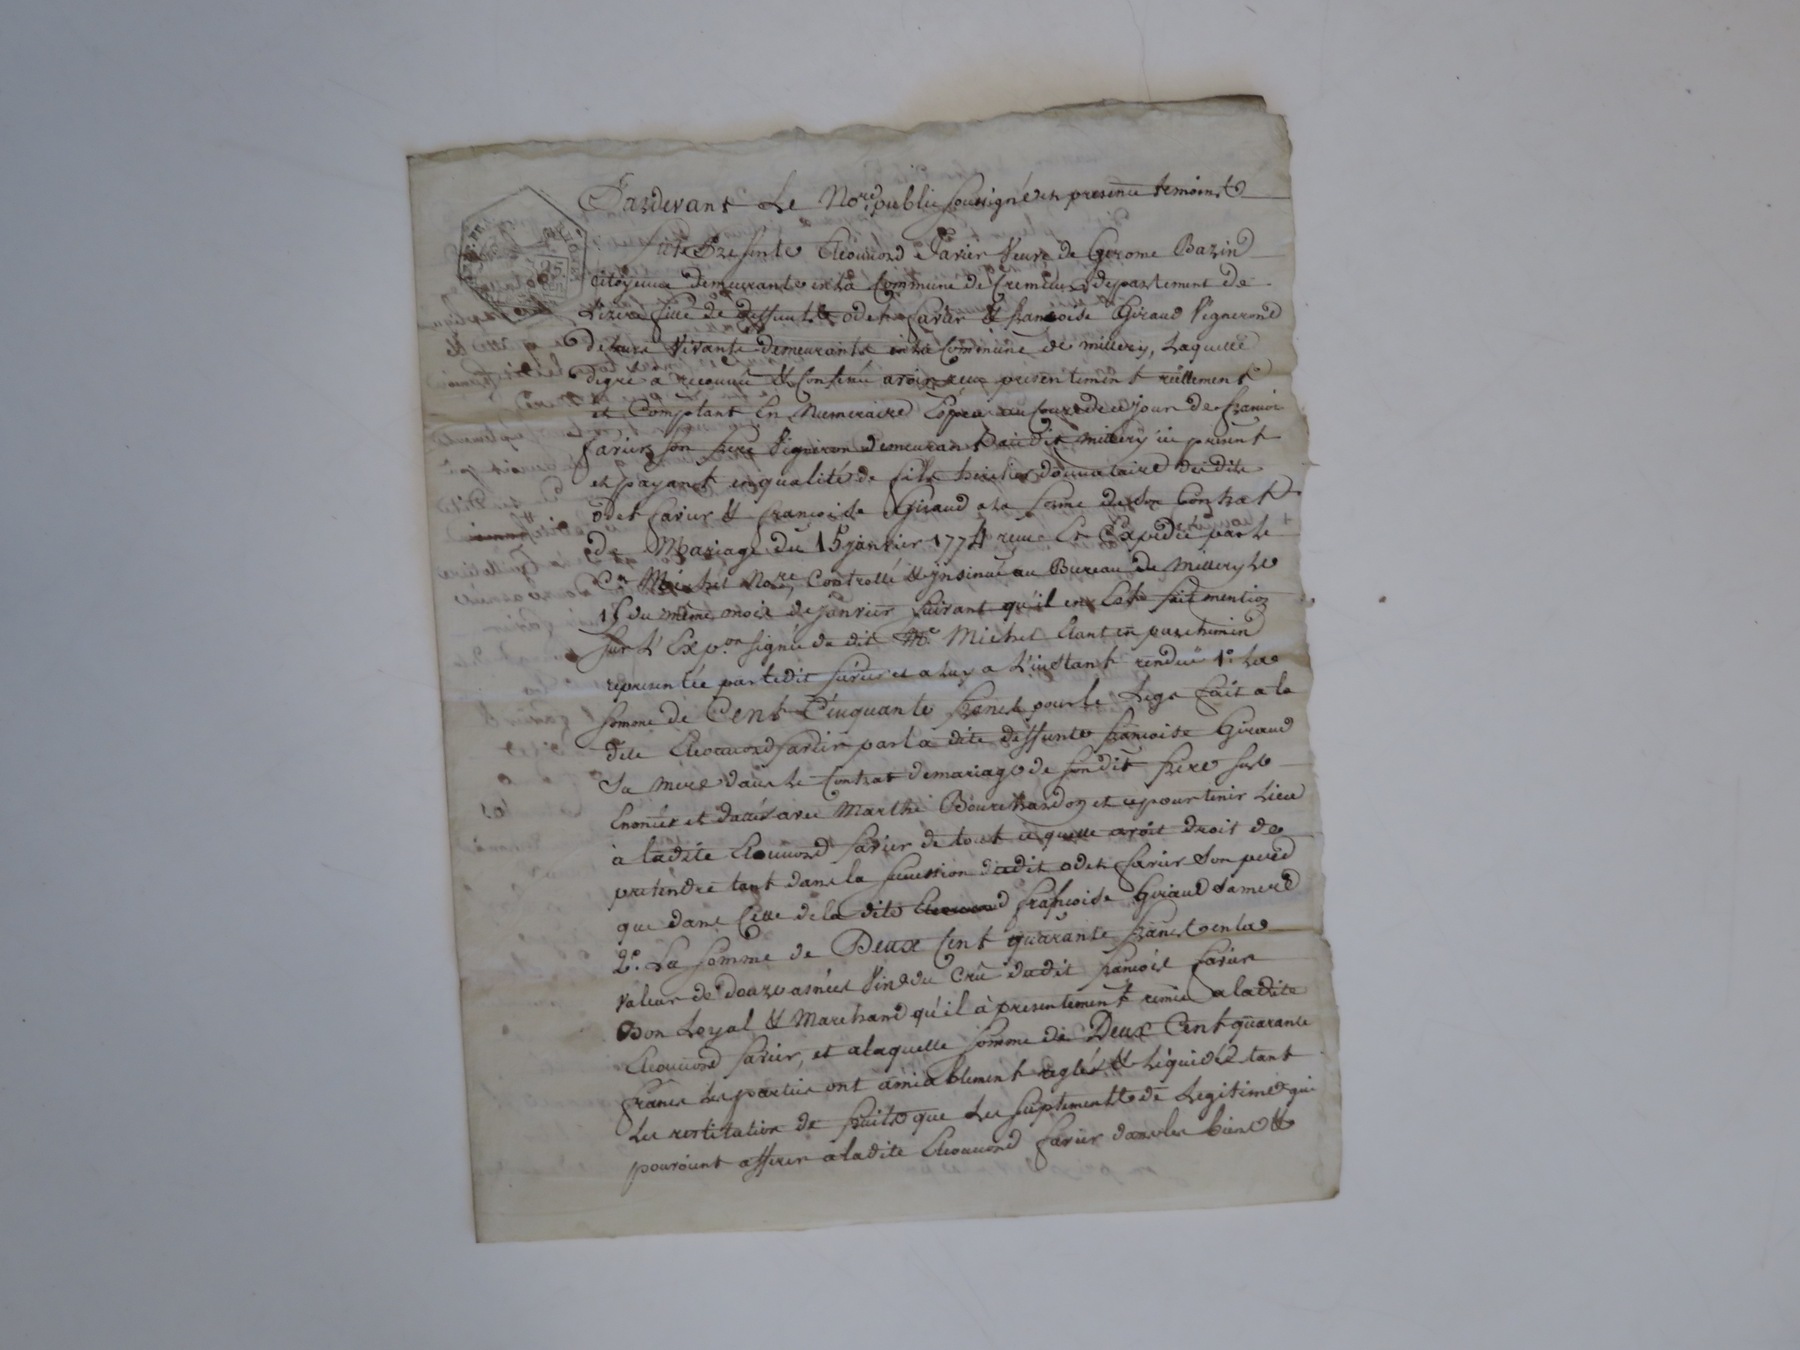 Pardevant Le No.re public soussigné et en presence temoins
fut Presente Cleomond Favier Veuve de Gerome Bazin
citoyenne demeurante en la Commune de Cremieux departement de
L'izere fille de deffunts odet favier & francoise Giraud Vignerons
de leurs Vivants demeurants en la Commune de millery, Laquelle
degré a reconnu & Confessé avoir reçu presentement réellement
et Comptant En Numeraire Especes au cours de ce jour de francois
favier son frere Vigneron demeurant audit millery ici present
et payant en qualité de fils heritier donnataire desdits
odet favier & francoise Giraud a la forme de son Contrat
de Mariage du 15 janvier 1774 recu Et Expedié par le
C.en Michel No.re, Controllé & ynsinué au Bureau de Millery le
du même mois de janvier suivant qu'il en Est fait mention
sur L'Exp.on signée du dit M.e Michel Etant en parchemin
representée par ledit favier et a luy a L'instant rendue 1.o La
somme de Cent Cinquante francs pour le Legs fait a la
dite Cleomond favier par la dite deffunte francoise Giraud
sa mere dans le Contrat de mariage de son dit frere sus
Enoncés et datés avec Marthe Bourchardon et ce pour tenir Lieu
à ladite Cleomond favier de tout ce qu'elle avoit droit de
pretendre tant dans la succession dudit odet favier son pere
que dans Celle de la dite francoise Giraud sa mere
2.o La somme de Deux Cent quarante francs en la
valeur de douze asnées Vin du Crû dudit francois favier
Bon Loyal & Marchand qu'il à presentement remis a la dite
Cleomond favier, et a laquelle somme de Deux Cent quarante
francs les parties ont amiablement reglés & Liquidés tant
les restitution de fruits que les suplements de Legitime qui
pouroient afferer a ladite Cleomond favier dans les biens &